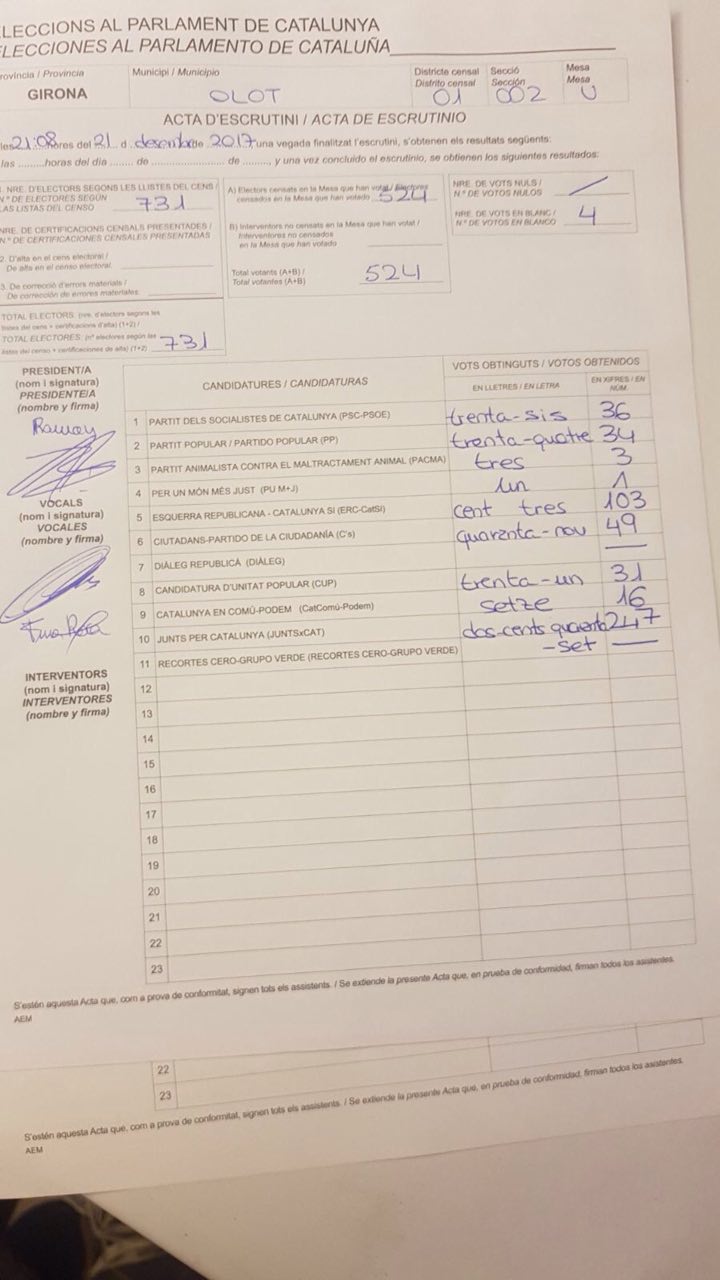 LECCIONS AL PARLAMENT DE CATALUNYA
LECCIONES AL PARLAMENTO DE CATALUÑA
rovíncia / Provincia
GIRONA
Municipi / Municipio
OLOT
Districte censal
Distrito censal
01
Secció
Sección
002
Mesa
Mesa
U
ACTA D'ESCRUTINI / ACTA DE ESCRUTINIO
les 21:08 hores del 21 d desembre de 2017 una vegada finalitzat l'escrutini, s'obtenen els resultats següents:
las .........horas del día ........ de ........................ de ........., y una vez concluido el escrutinio, se obtienen los siguientes resultados:
. NRE. D'ELECTORS SEGONS LES LLISTES DEL CENS /
N.º DE ELECTORES SEGÚN
LAS LISTAS DEL CENSO
731
NRE. DE CERTIFICACIONS CENSALS PRESENTADES /
N.º DE CERTIFICACIONES CENSALES PRESENTADAS
2. D'alta en el cens electoral /
De alta en el censo electoral.
3. De correcció d'errors materials /
De corrección de errores materiales.
TOTAL ELECTORS: (nre. d'electors segons les
llistes del cens + certificacions d'alta) (1+2) /
TOTAL ELECTORES: (nº electores según las
listas del censo + certificaciones de alta) (1+2)
731
A) Electors censats en la Mesa que han votat / Electores
censados en la Mesa que han votado
524
B) Interventors no censats en la Mesa que han votat /
Interventores no censados
en la Mesa que han votado
Total votants (A+B) /
Total votantes (A+B)
524
NRE. DE VOTS NULS /
N.º DE VOTOS NULOS
NRE. DE VOTS EN BLANC /
N.º DE VOTOS EN BLANCO
4
PRESIDENT/A
(nom i signatura)
PRESIDENTE/A
(nombre y firma)
VOCALS
(nom i signatura)
VOCALES
(nombre y firma)
INTERVENTORS
(nom i signatura)
INTERVENTORES
(nombre y firma)
CANDIDATURES / CANDIDATURAS
VOTS OBTINGUTS / VOTOS OBTENIDOS
EN LLETRES / EN LETRA
EN XIFRES / EN NÚM.
1 PARTIT DELS SOCIALISTES DE CATALUNYA (PSC-PSOE) trenta-sis 36
2 PARTIT POPULAR / PARTIDO POPULAR (PP) trenta-quatre 34
3 PARTIT ANIMALISTA CONTRA EL MALTRACTAMENT ANIMAL (PACMA) tres 3
4 PER UN MÓN MÉS JUST (PU M+J) un 1
5 ESQUERRA REPUBLICANA - CATALUNYA SÍ (ERC-CatSí) cent tres 103
6 CIUTADANS-PARTIDO DE LA CIUDADANÍA (C's) quaranta-nou 49
7 DIÀLEG REPUBLICÀ (DIÀLEG)
8 CANDIDATURA D'UNITAT POPULAR (CUP) trenta-un 31
9 CATALUNYA EN COMÚ-PODEM (CatComú-Podem) setze 16
10 JUNTS PER CATALUNYA (JUNTSxCAT) dos-cents quaranta 247
-set
11 RECORTES CERO-GRUPO VERDE (RECORTES CERO-GRUPO VERDE)
12
13
14
15
16
17
18
19
20
21
22
23
S'estén aquesta Acta que, com a prova de conformitat, signen tots els assistents. / Se extiende la presente Acta que, en prueba de conformidad, firman todos los asistentes.
AEM
22
23
S'estén aquesta Acta que, com a prova de conformitat, signen tots els assistents. / Se extiende la presente Acta que, en prueba de conformidad, firman todos los asistentes.
AEM